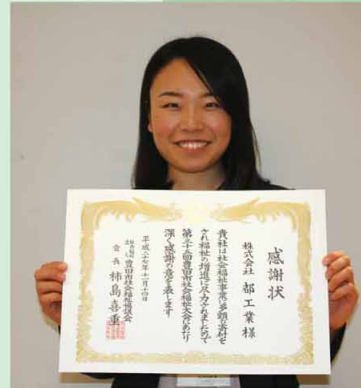 感謝状
株式会社 都工業 様
貴社は社会福祉事業に多額の素材を
され福祉の増進に尽力されましたので
第三十五回豊田市社会福祉大会にあたり
深く感謝の意を表します
平成二十七年十一月十四日
豊田市社会福祉協議会
会長 柿島喜重